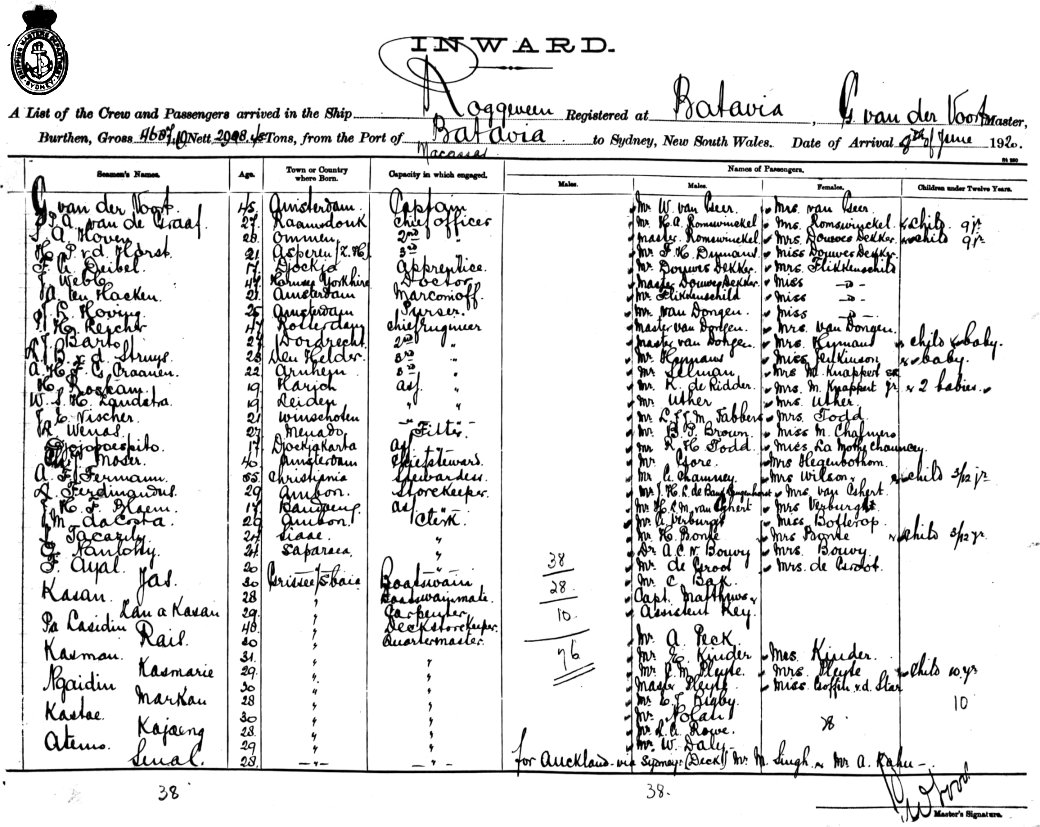 SHIPPING MASTERS DEPARTMENT SYDNEY
INWARD.
A List of the Crew and Passengers arrived in the Ship Roggeveen Registered at Batavia, G van der Voort Master,
Burthen, Gross Nett Tons, from the Port of Batavia to Sydney, New South Wales. Date of Arrival June 1920.
Macassar
Names of Passengers.
Seamen's Names. Age. Town or Country where Born. Capacity in which engaged. Males. Males. Females. Children under Twelve Years.
G van der Voort. 45 Amsterdam. Captain Mr W. van Geer. Mrs. van Geer.
van de Graaf 27 Raamsdonk chief officer Mr H.A. Romswinckel Mrs. Romswinckel & child 9 jr.
Hoven 28 Ommen 2nd " Master Romswinckel Mrs. Douwes Dekker & child 9 jr.
H. P. v.d. Horst 21 Asperen 3rd " Mr. F. H. Dymans Miss Douwes Dekker.
F. G. Deibel. 17 Djockja Apprentice. Mr. Douwes Dekker Mrs. Flikkenschild
J Webb 47 Yorkshire Doctor Master Douwes Dekker. Miss -"-
A. ten Hacken 21 Amsterdam Marconoff. Mr Flikkenschild Miss -"-
Hoving 25 Amsterdam Purser. Mr. van Dongen Miss -"-
Reycher 47 Rotterdam chief Master van Dongen Mrs. van Dongen.
J. Barto 27 Dordrecht 2nd " Master van Dongen. Mrs. Hymans child & baby.
B. v. d. Struys. 23 Den Helder. 3rd " Mr Hymans Miss Jenkinson & baby.
A. H. F. C. Craanen. 22 Arnhem " Mr Selman Mrs W. Knappert sr
H. Roskam 19 Harich ass. " Mr. K. de Ridder. Mrs. M. Knappert Jr. & 2 babies.
W. S. H. Landstra 19 Leiden " " Mr Uther Mrs. Uther.
J. E. Vischer. 21 Winschoten " Mr Tabbers Mrs. Todd
Wenas 27 Menado Fitter Mr. B. G. Brown. Miss M. Chalmers
17 Djockjakarta ass Mr H. Todd Miss La Motte Chauncey
Moser 40 Amsterdam Chiefsteward. Mr Gore. Mrs Hegenbothom.
A. F. Fermann. 55 Christiania Stewardess. Mr G. Chauncey Mrs Wilson & child 3/12 jr.
Ferdinandus 29 Ambon. Storekeeper Mrs. van Eshert
H. F. Bloem. 17 Bandoeng ass Mr H. C. M. van Eshert Mrs Verburght
J. M. da Costa. 29 Ambon. Clerk Mr G. Verburgt Miss Bofterop
24 Siaoe. " Mr H. Bonke Mrs Bonke & child 3/12 jr.
Nanlohy 24 Saparaea " Dr A. C. N. Bouvy Mrs. Bouvy
F. Ayal. 20 " 38 Mr de Groot Mrs. de Groot
Jas. 30 Grissee/Sbaia Boatswain Mr C Bak.
Kasan. 28 " Boatswainmate. 28 Capt. Matthews
Kasan 29 " Carpenter 10 Assistent Key.
Pa Lasidin 48 " Deckstorekeeper
Rail. 30 " Quartermaster. Mr A. Peck
Kasman. 31 " " 76 Mr Kinder Mrs Kinder.
Kasmarie 29 " " Mr J. M. Pleyte. Mrs. Pleyte & child 10 yr
Ngaidin 30 " " Master Pleyte Miss v.d. Star
Markau 28 " " Mr Rigby 10
Kastae 30 " " Mr Nolan
Kajaeng 28 " " Mr. Rowe.
Atemo. 29 " " Mr W. Daly
Senal. 28 -"- -"- for Auckland via Sydney (Deck) Mr M. Singh. & Mr A. Kahu
38 38.
Master's Signature.